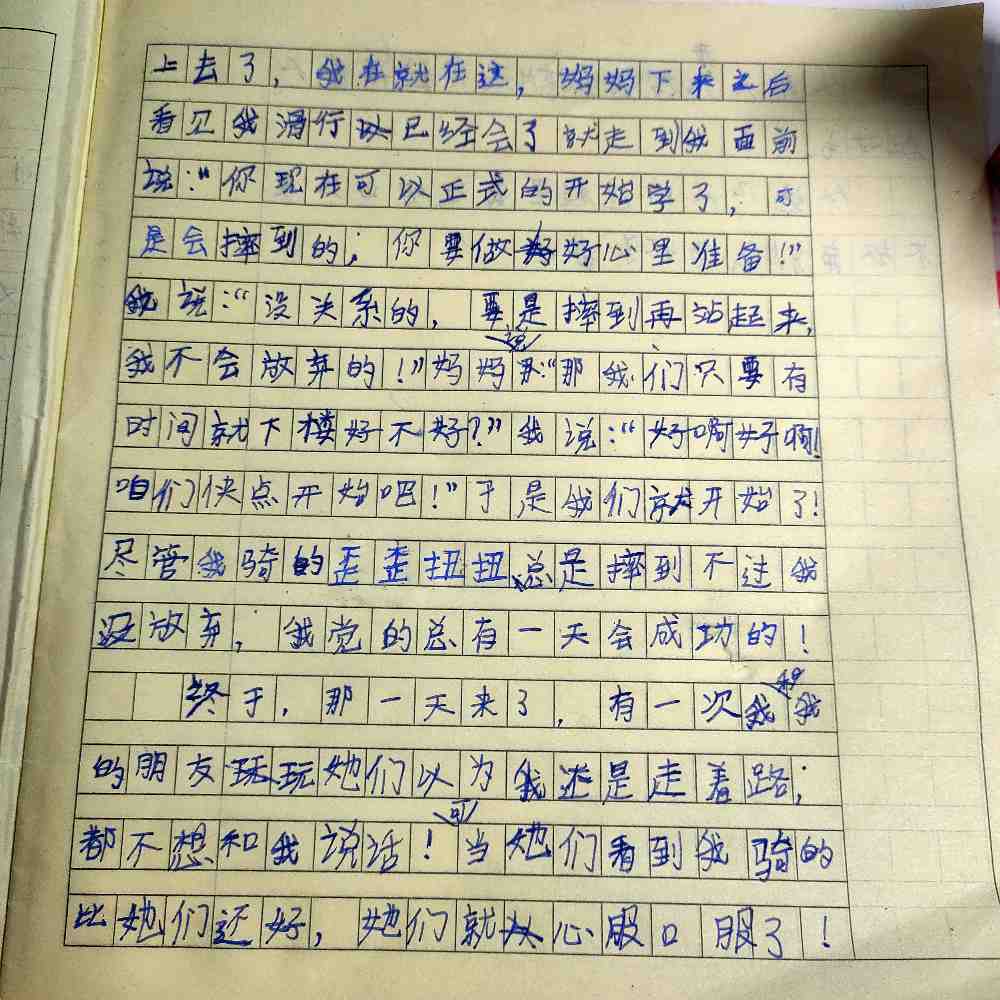 上去了，我在就在这，妈妈下来之后
看见我滑行以已经会了就走到我面前
说：“你现在可以正式的开始学了，可
是会摔到的；你要做好好心里准备！”
我说：“没关系的，要是摔到再站起来，
我不会放弃的！”妈妈说：“那我们只要有
时间就下楼好不好？”我说：“好啊好啊！
咱们快点开始吧！”于是我们就开始了！
尽管我骑的歪歪扭扭、总是摔到不过我
没放弃，我党的总有一天会成功的！
终于，那一天来了，有一次我和我
的朋友玩玩她们以为我还是走着路；
都不想和我说话！可当她们看到我骑的
比她们还好，她们就从心服口服了！